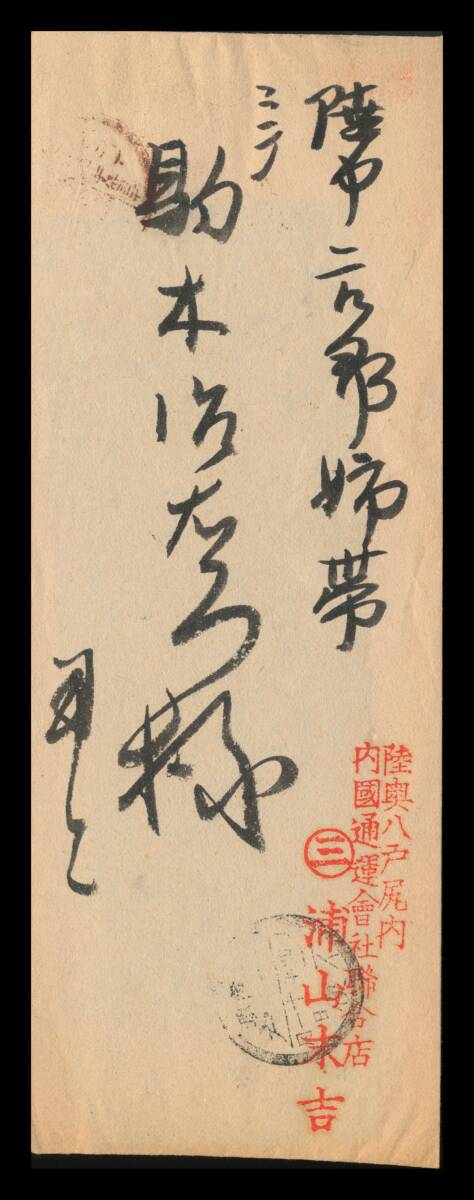 陸中二戸郡姉帯
駒木治左エ門様
用上
陸奥八戸尻内
内國通運會社聯合店
㊂ 浦山末吉